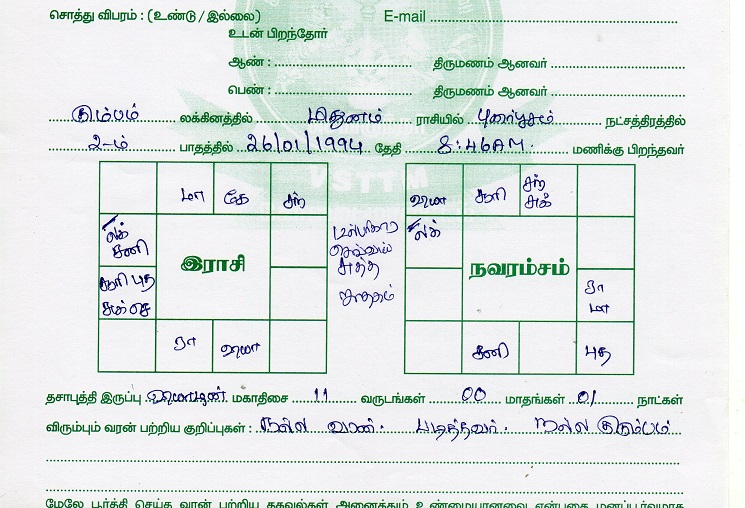 சொத்து விபரம் : (உண்டு / இல்லை) E-mail
உடன் பிறந்தோர்
ஆண் : திருமணம் ஆனவர்
பெண் : திருமணம் ஆனவர்
கும்பம் லக்கினத்தில் மிதுனம் ராசியில் புனர்பூசம் நட்சத்திரத்தில்
2-ம் பாதத்தில் 26/01/1994 தேதி 8:46AM. மணிக்கு பிறந்தவர்
VSTTM
மா கே சந்
லக்
சனி
இராசி
சூரி புத
சுக் செ
ரா குரு
பரிகார
செவ்வாய்
சுத்த
ஜாதகம்
குரு சூரி சந்
சுக்
லக்
நவரம்சம்
ரா
மா
சனி புத
தசாபுத்தி இருப்பு குருபகவான் மகாதிசை 11 வருடங்கள் 00 மாதங்கள் 01 நாட்கள்
விரும்பும் வரன் பற்றிய குறிப்புகள் : நல்ல வரன். படித்தவர். நல்ல குடும்பம்
மேலே பூர்த்தி செய்த வரன் பற்றிய தகவல்கள் அனைத்தும் உண்மையானவை என்பதை மனப்பூர்வமாக